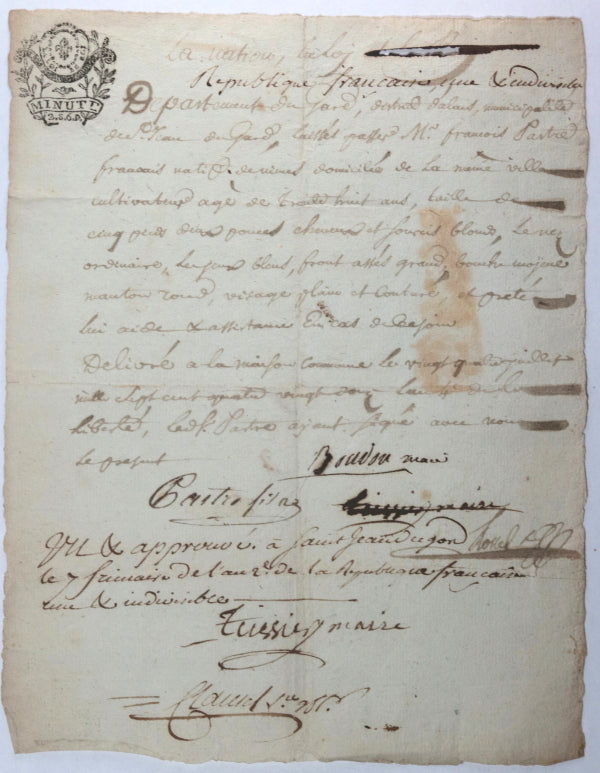 MINUTE
2.S.6.D.
La nation, la loy
Republique francaise une & indivisible
Departement du Gard, district dalais, municipalité
de St Jean du Gard, laissés passer Mr. francois Pastre
francois natif de nimes domicilié de la meme ville
cultivateur agé de trante huit ans, taille de
cinq pieds deux pouces cheveux et sourcis blond, le nez
ordinaire, les yeux bleus, front assés grand, bouche moyene
manton rond, visage plain et couturé, et preté
lui aide & assistance En cas de besoin
Delivré a la maison commune le vingt quatre juillet
mille sept cent quatre vingt douze lan 4e de la
liberté, ledt. Pastre ayant signé avec nous
le present
Boudon maire
Pastre fils
Teissier maire
Vu & approuvé à Saint Jean du gard
le 7 frimaire de l'an 2e. de la Republique francaise
une & indivisible
Teissier maire
Clauzel